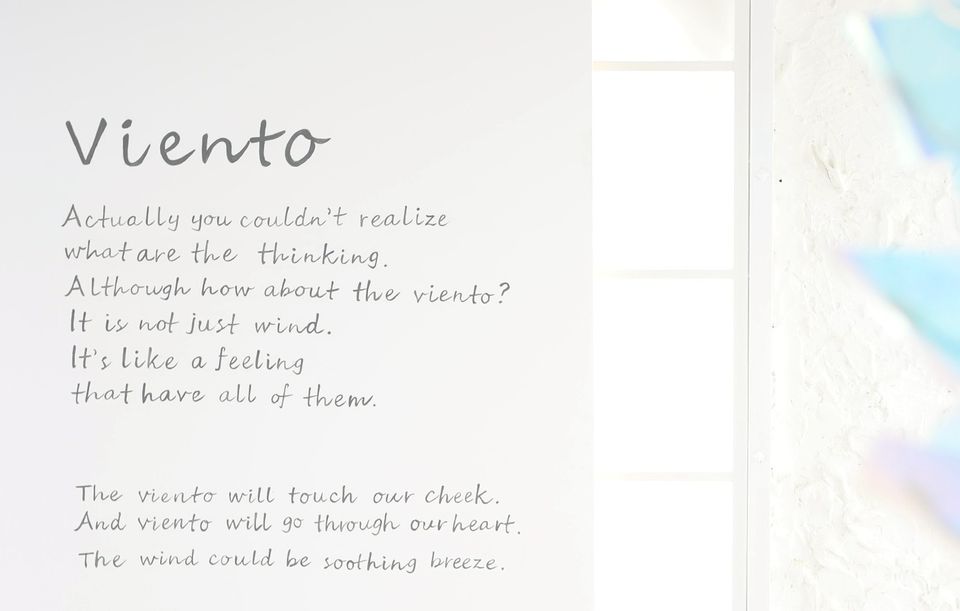 Viento
Actually you couldn't realize
what are the thinking.
Although how about the viento?
It is not just wind.
It's like a feeling
that have all of them.
The viento will touch our cheek.
And viento will go through our heart.
The wind could be soothing breeze.